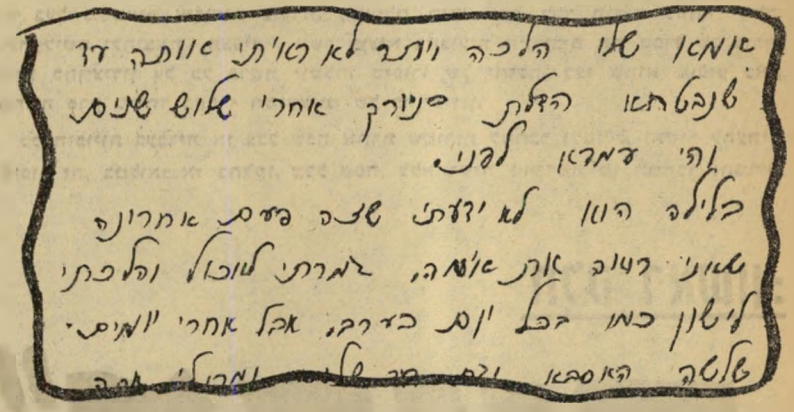 אומא שלי הלכה ויותר לא ראיתי אוותה עד
שנבטחא הדלת בניורק אחרי שלוש שנים
והי עמדא לפני.
בלילה הוא לא ידעתי שזה פעם אחרונה
שאני רואה את אימה, גמרתי לאכול והלכתי
לישון כמו בכל יום בערב, אבל אחרי יומים-
שלשה האסבא